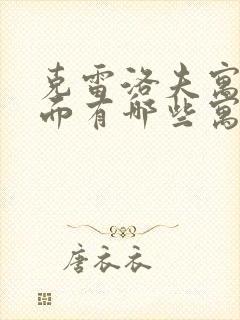 克雷洛夫寓
而有哪些寓
唐衣衣